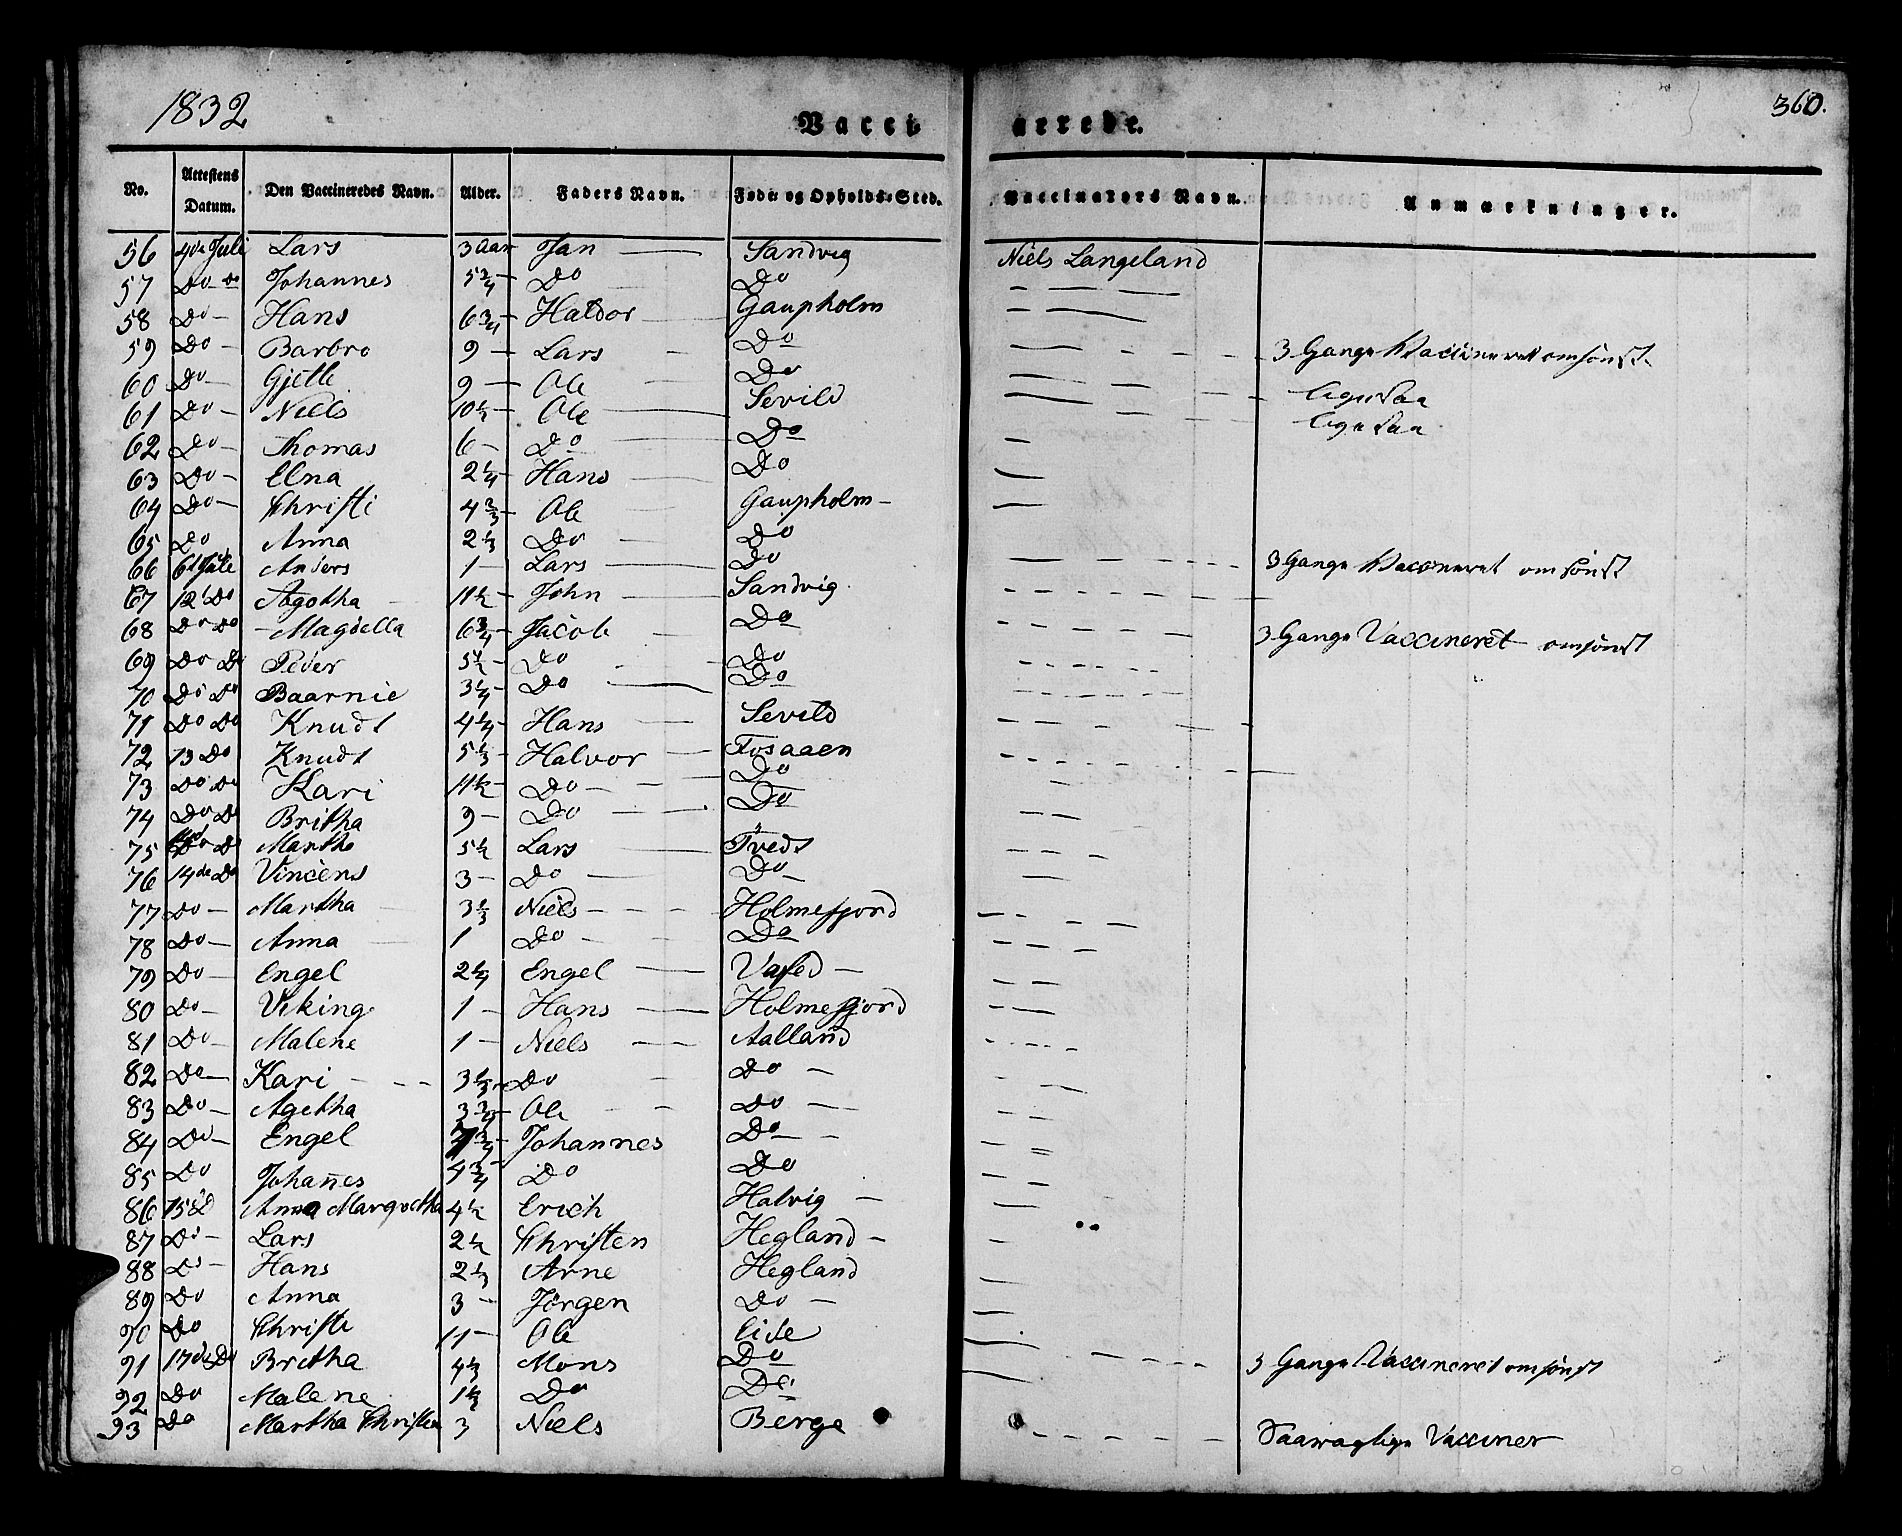 1832
360.
Vacci- nerede.
No. Attestens Datum. Den Vaccineredes Navn. Alder. Faders Navn. Føde- og Opholds-Sted. Vaccinators Navn. Anmærkninger.
56 4de Juli Lars 3 Aar Jan Sandvig Niels Langeland
57 Do Do Johannes 5 3/4 Do Do
58 Do Hans 6 3/4 Haldor Gaupholm
59 Do Barbro 9 Lars Do 3 Gange Vaccineret omsönst.
60 Do Gjetle 9 Ole Do ligesaa
61 Do Niels 10 1/2 Ole Sevild ligesaa
62 Do Thomas 6 Do Do
63 Do Elna 2 1/4 Hans Do
64 Do Christi 4 2/3 Ole Gaupholm
65 Do Anna 2 1/3 Do Do
66 6t Juli Anders 1 Lars Do 3 Gange Vaccineret omsönst
67 12t Do Agotha 11 1/2 John Sandvig
68 Do Do Magdella 6 3/4 Jacob Do 3 Gange Vaccineret omsönst
69 Do Do Peder 5 1/2 Do Do
70 Do Do Baarnie 3 1/4 Do Do
71 Do Do Knudt 4 1/4 Hans Sevild
72 13 Do Knudt 5 1/3 Halvor Fosaaen
73 Do Do Kari 11 1/2 Do Do
74 Do Do Britha 9 Do Do
75 Do Martha 5 1/2 Lars Tvedt
76 14de Do Vincens 3 Do Do
77 Do Martha 3 1/3 Niels Holmefjord
78 Do Anna 1 Do Do
79 Do Engel 2 1/4 Engel
80 Do Viking 1 Hans Holmefjord
81 Do Malene 1 Niels Aalland
82 Do Kari 3 1/3 Do Do
83 Do Agetha 3 3/4 Ole Do
84 Do Engel Johannes Do
85 Do Johan̄es 4 3/4 Do Do
86 15 D Anna Margretha 4 1/2 Erich Halvig
87 Do Lars 2 1/2 Christen Hegland
88 Do Hans 2 1/3 Arne Hegland
89 Do Anna 3 Jörgen Do
90 Do Christi 11 Ole Eide
91 17de Do Bretha 4 1/3 Mons Do 3 Gange Vaccineret omsönst
92 Do Malene 1 1/2 Do Do
93 Do Martha Christen 3 Niels Berge Vacciner